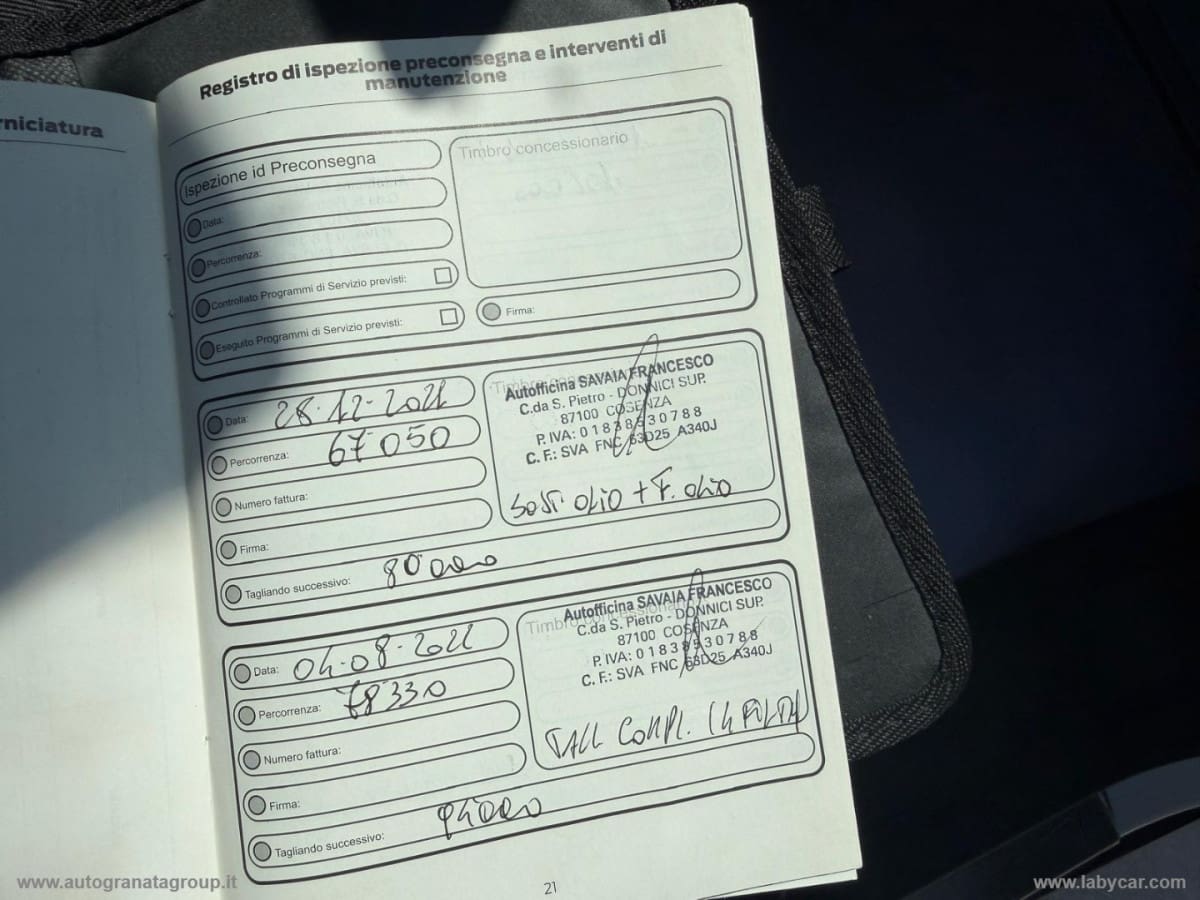 rniciatura
Registro di ispezione preconsegna e interventi di
manutenzione
Ispezione id Preconsegna
Timbro concessionario
Data:
Percorrenza:
Controllato Programmi di Servizio previsti:
Eseguito Programmi di Servizio previsti:
Firma:
Data: 28-12-2021
Percorrenza: 67050
Numero fattura:
Firma:
Tagliando successivo: 80000
Autofficina SAVAIA FRANCESCO
C.da S. Pietro - DONNICI SUP.
87100 COSENZA
P. IVA: 01838530788
C. F.: SVA FNC 63D25 A340J
SOST OLIO + F. OLIO
Data: 04-08-2022
Percorrenza: 78330
Numero fattura:
Firma:
Tagliando successivo:
Timbro concessionario
Autofficina SAVAIA FRANCESCO
C.da S. Pietro - DONNICI SUP.
87100 COSENZA
P. IVA: 01838530788
C. F.: SVA FNC 63D25 A340J
TALL COMPL. (4 FILTRI)
21
www.autogranatagroup.it
www.labycar.com